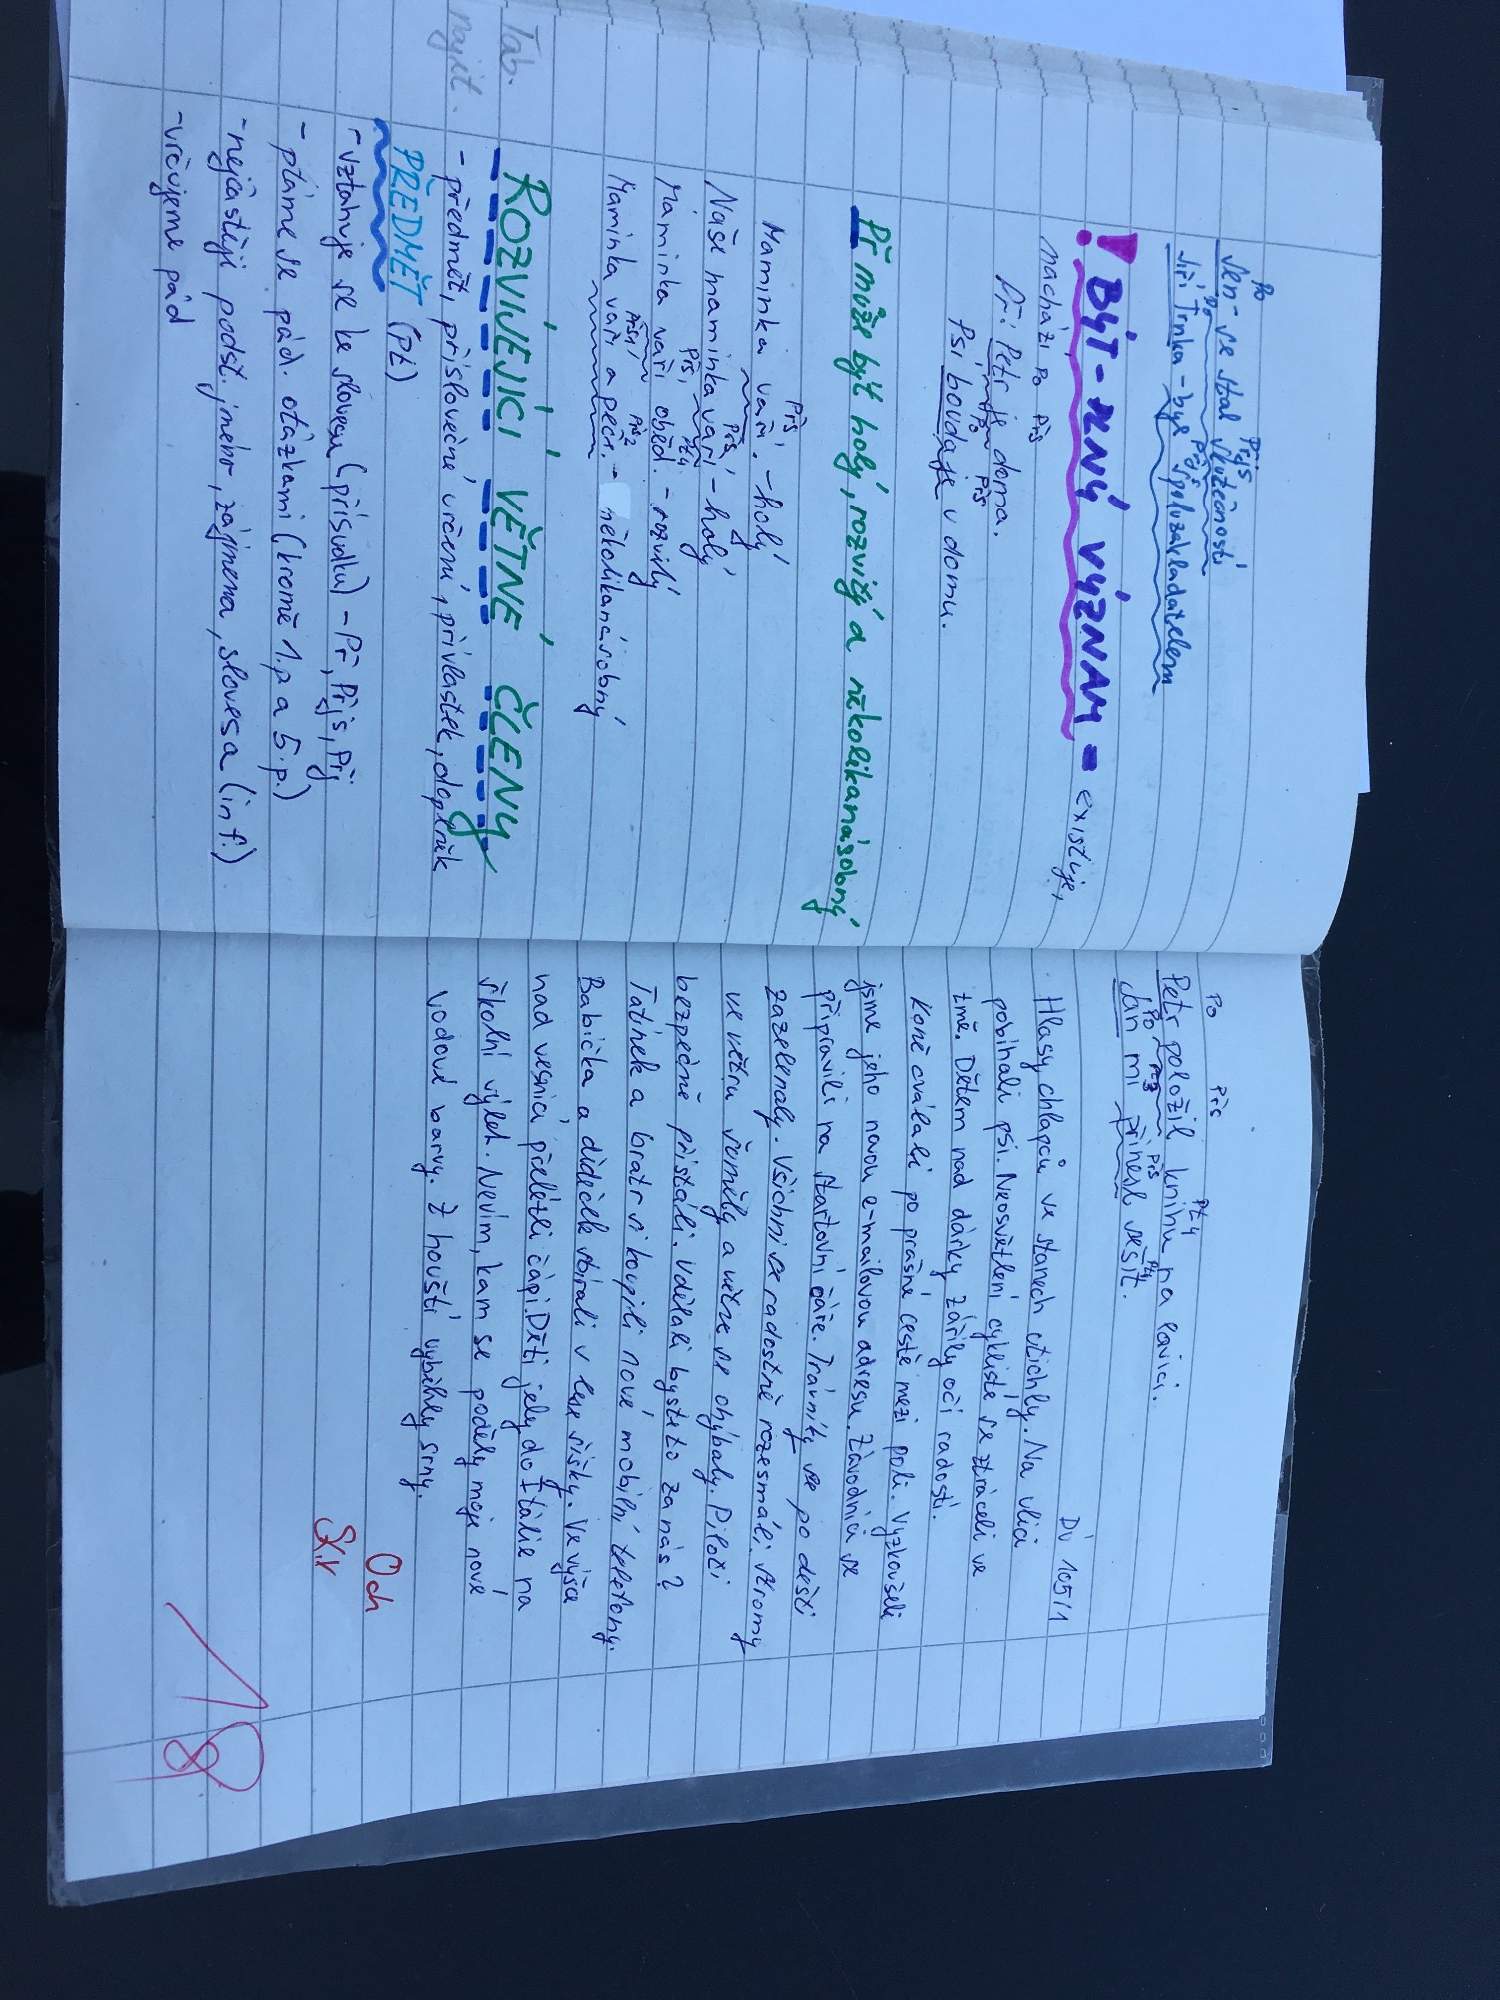 Po Přjs
Sen - se stal skutečností
Po Přjs
Jiří Trnka - byl spoluzakladatelem
! BÝT - PLNÝ VÝZNAM = existuje,
nachází
Po Přs
Př: Petr je doma.
Po Přs
Psí bouda je v domu.
Př může být holý, rozvitý a několikanásobný
Přs
Maminka vaří. - holý
Přs
Naše maminka vaří - holý
Přs Pt4
Maminka vaří oběd. - rozvitý
Přs1 Přs2
Maminka vaří a peče. - několikanásobný
Tab. ROZVÍJEJÍCÍ VĚTNÉ ČLENY
najít. - předmět, příslovečné určení, přívlastek, doplněk
PŘEDMĚT (Pt)
- vztahuje se ke slovesu (přísudku) - Př, Přjs, Přj
- ptáme se pád. otázkami (kromě 1.p a 5.p.)
- nejčastěji podst. jméno, zájmena, slovesa (inf.)
- určujeme pád
Po Přs Pt4
Petr položil knihu na lavici.
Po Pt3 Přs Pt4
Jan mi přinesl sešit.
DÚ 105/1
Hlasy chlapců ve stanech utichly. Na ulici
pobíhali psi. Neosvětlení cyklisté se ztráceli ve
tmě. Dětem nad dárky zářily oči radostí.
Koně cválali po prašné cestě mezi poli. Vyzkoušeli
jsme jeho novou e-mailovou adresu. Závodníci se
připravili na startovní čáře. Trávníky se po dešti
zazelenaly. Všichni se radostně rozesmáli. Stromy
ve větru šuměly a větve se ohýbaly. Piloti
bezpečně přistáli. Udělali byste to za nás?
Tatínek a bratr si koupili nové mobilní telefony.
Babička a dědeček sbírali v lese šišky. Ve výšce
nad vesnicí přelétli čápi. Děti jely do Itálie na
školní výlet. Nevím, kam se poděly moje nové
vodové barvy. Z houští vyběhly srny.
Och
18